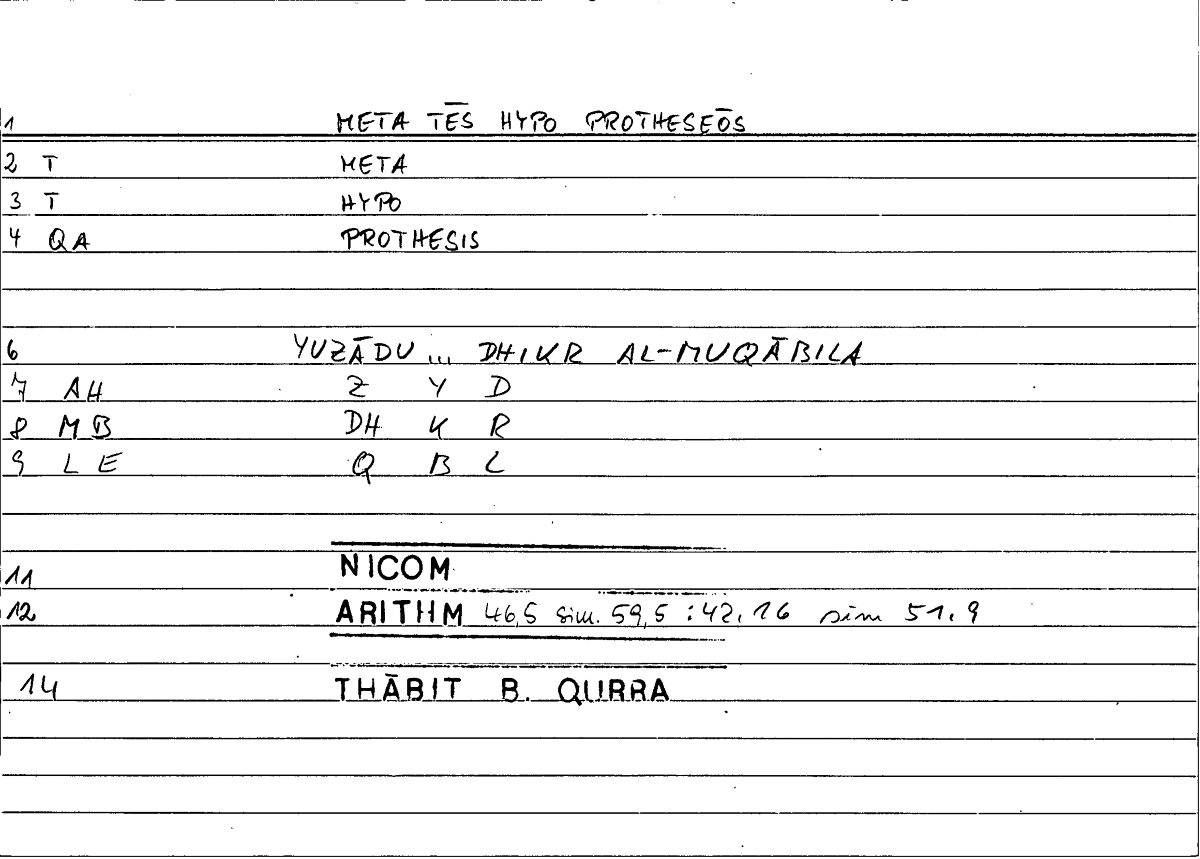 1 META TĒS HYPO PROTHESEŌS
2 T META
3 T HYPO
4 QA PROTHESIS
6 YUZĀDU ... DHIKR AL-MUQĀBILA
7 AH Z Y D
8 MB DH K R
9 LE Q B L
11 NICOM
12 ARITHM 46,5 sim. 59,5 : 42,16 sim 51,9
14 THĀBIT B. QURRA